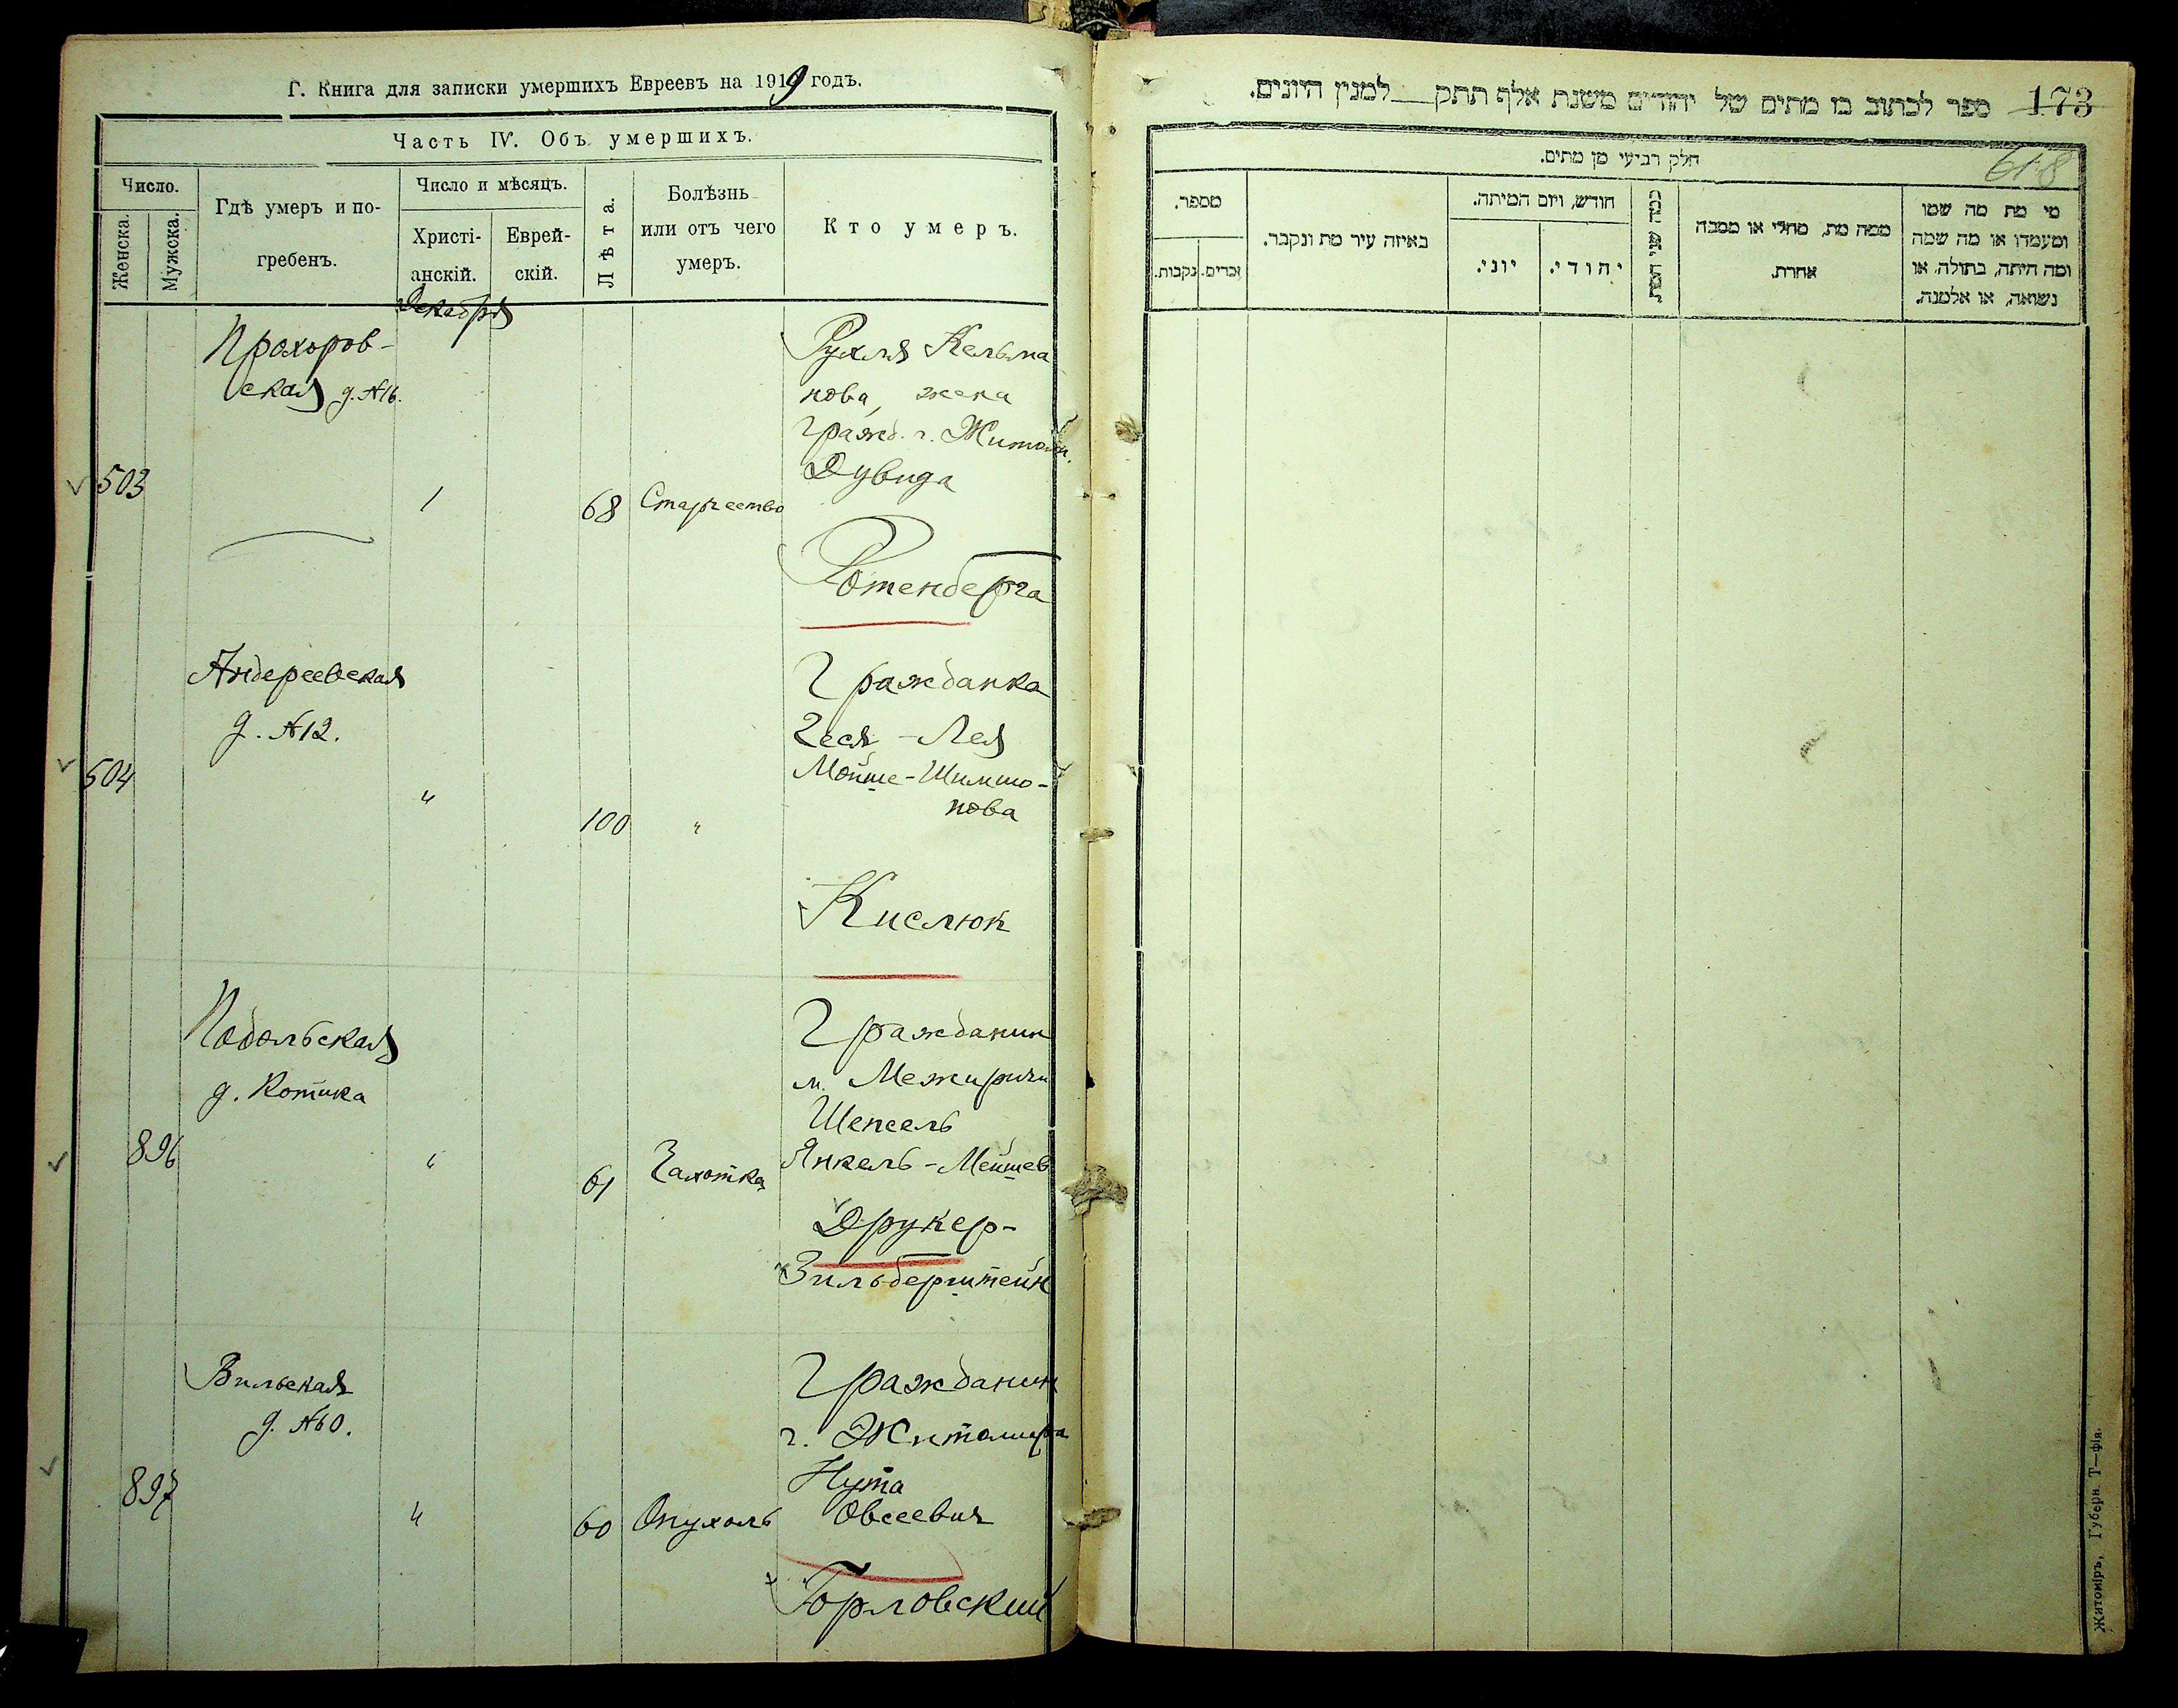 Г. Книга для записки умершихъ Евреевъ на 1919 годъ.
Часть IV. Объ умершихъ.
Число.
Женска.
Мужска.
Гдѣ умеръ и по-
гребенъ.
Число и мѣсяцъ.
Христі-
анскій.
Еврей-
скій.
Лѣта.
Болѣзнь
или отъ чего
умеръ.
Кто умеръ.
Декабря
Прохоров-
ская д. №16.
503
1
68
Старчество
Рухля Кельма
нова, жена
гражд. г. Житом.
Дувида
Ротенберга
Андереевская
д. №12.
504
"
100
"
Гражданка
Геся-Лея
Мойше-Шимшо-
нова
Кислюк
Подольская
д. Котика
896
"
61
Чахотка
Гражданин
м. Межиричи
Шепсель
Янкель-Мейшев
Друкер-
Зильберштейн
Вильская
д. №60.
897
"
60
Опухоль
Гражданин
г. Житомира
Нута
Овсеевич
Горловский
173
ספר לכתוב בו מתים של יהודים משנת אלף תתק__למנין היונים.
618
חלק רביעי מן מתים.
מספר.
נקבות.
זכרים.
באיזה עיר מת ונקבר.
חודש, ויום המיתה.
יוני.
יהודי.
כמה שני המת
ממה מת, מחלי או מסבה
אחרת.
מי מת מה שמו
ומעמדו או מה שמה
ומה היתה, בתולה, או
נשואה, או אלמנה.
Житоміръ, Губерн. Т—фія.